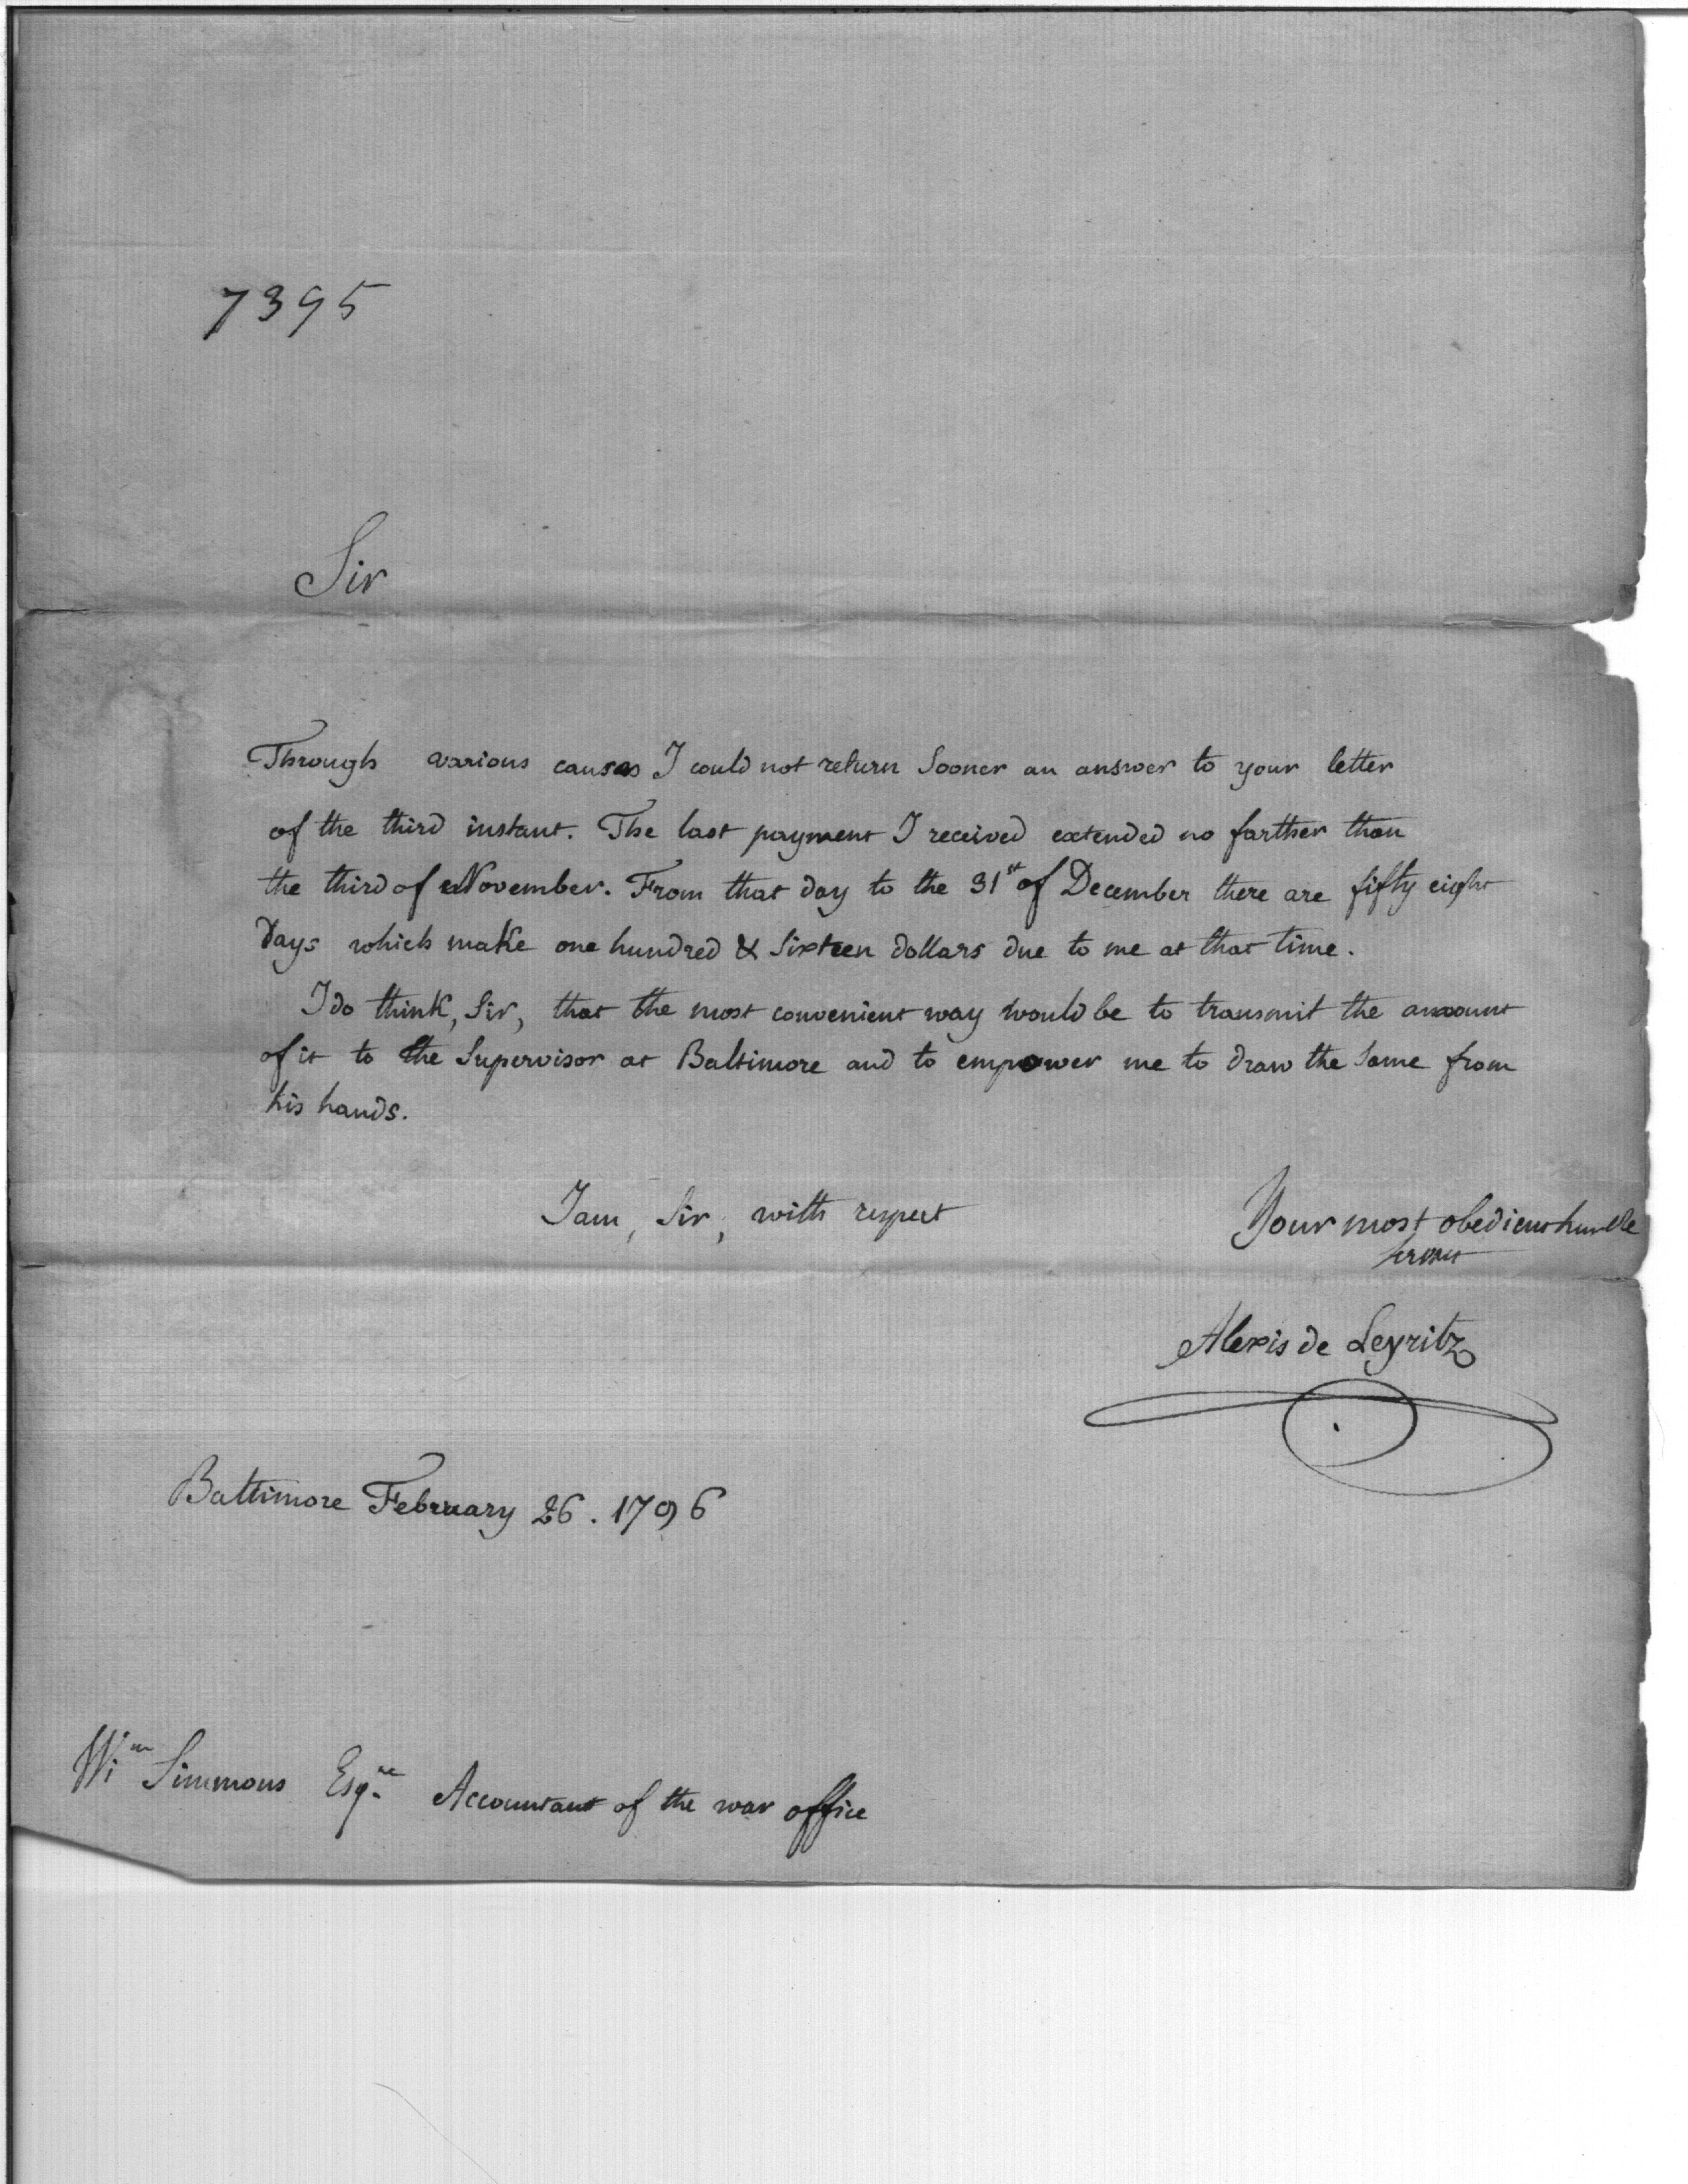 7395
Sir
Through various causes I could not return Sooner an answer to your letter
of the third instant. The last payment I received extended no farther than
the third of November. From that day to the 31st of December there are fifty eight
Days which make one hundred & Sixteen dollars due to me at that time.
I do think, Sir, that the most convenient way would be to transmit the amount
of it to the Supervisor at Baltimore and to empower me to draw the Same from
his hands.
I am, Sir, with respect
Your most obedient humble
Servant
Alexis de Leyritz
Baltimore February 26. 1796
Wm Simmons Esqre Accountant of the war office